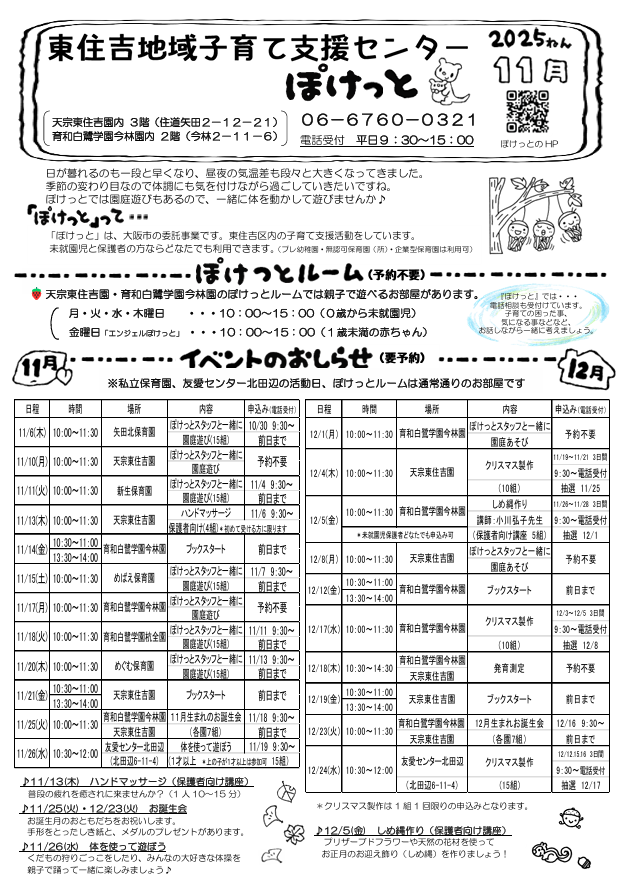 東住吉地域子育て支援センター
ぽけっと
2025ねん
11月
ぽけっとのHP
天宗東住吉園内 3階（住道矢田2－12－21）
育和白鷺学園今林園内 2階（今林2－11－6）
06－6760－0321
電話受付 平日9：30～15：00
日が暮れるのも一段と早くなり、昼夜の気温差も段々と大きくなってきました。
季節の変わり目なので体調にも気を付けながら過ごしていきたいですね。
ぽけっとでは園庭遊びもあるので、一緒に体を動かして遊びませんか♪
「ぽけっと」って…
「ぽけっと」は、大阪市の委託事業です。東住吉区内の子育て支援活動をしています。
未就園児と保護者の方ならどなたでも利用できます。（プレ幼稚園・無認可保育園（所）・企業型保育園は利用可）
ぽけっとルーム（予約不要）
天宗東住吉園・育和白鷺学園今林園のぽけっとルームでは親子で遊べるお部屋があります。
月・火・水・木曜日 ・・・10：00～15：00（0歳から未就園児）
金曜日「エンジェルぽけっと」 ・・・10：00～15：00（1歳未満の赤ちゃん）
『ぽけっと』では・・・
電話相談も受付けています。
子育ての困った事、
気になる事などなど、
お話しながら一緒に考えましょう。
11月
イベントのおしらせ（要予約）
12月
※私立保育園、友愛センター北田辺の活動日、ぽけっとルームは通常通りのお部屋です
日程 時間 場所 内容 申込み(電話受付)
11/6(木) 10:00～11:30 矢田北保育園 ぽけっとスタッフと一緒に 園庭遊び(15組) 10/30 9:30～ 前日まで
11/10(月) 10:00～11:30 天宗東住吉園 ぽけっとスタッフと一緒に 園庭遊び 予約不要
11/11(火) 10:00～11:30 新生保育園 ぽけっとスタッフと一緒に 園庭遊び(15組) 11/4 9:30～ 前日まで
11/13(木) 10:00～11:30 天宗東住吉園 ハンドマッサージ 保護者向け(4組)＊初めて受ける方に限ります 11/6 9:30～ 前日まで
11/14(金) 10:30～11:00 13:30～14:00 育和白鷺学園今林園 ブックスタート 前日まで
11/15(土) 10:00～11:30 めばえ保育園 ぽけっとスタッフと一緒に 園庭遊び(15組) 11/7 9:30～ 前日まで
11/17(月) 10:00～11:30 育和白鷺学園今林園 ぽけっとスタッフと一緒に 園庭遊び 予約不要
11/18(火) 10:00～11:30 育和白鷺学園杭全園 ぽけっとスタッフと一緒に 園庭遊び(15組) 11/11 9:30～ 前日まで
11/20(木) 10:00～11:30 めぐむ保育園 ぽけっとスタッフと一緒に 園庭遊び(15組) 11/13 9:30～ 前日まで
11/21(金) 10:30～11:00 13:30～14:00 天宗東住吉園 ブックスタート 前日まで
11/25(火) 10:00～11:30 育和白鷺学園今林園 天宗東住吉園 11月生まれのお誕生会 (各園7組) 11/18 9:30～ 前日まで
11/26(水) 10:30～12:00 友愛センター北田辺 (北田辺6-11-4) 体を使って遊ぼう (1才以上 ＊上の子が1才以上は参加可 15組) 11/19 9:30～ 前日まで
日程 時間 場所 内容 申込み(電話受付)
12/1(月) 10:00～11:30 育和白鷺学園今林園 ぽけっとスタッフと一緒に 園庭あそび 予約不要
12/4(木) 10:00～11:30 天宗東住吉園 クリスマス製作 (10組) 11/19～11/21 3日間 9:30～電話受付 抽選 11/25
12/5(金) 10:00～11:30 育和白鷺学園今林園 ＊未就園児保護者どなたでも申込み可 しめ縄作り 講師：小川弘子先生 (保護者向け講座 5組) 11/26～11/28 3日間 9:30～電話受付 抽選 12/1
12/8(月) 10:00～11:30 天宗東住吉園 ぽけっとスタッフと一緒に 園庭あそび 予約不要
12/12(金) 10:30～11:00 13:30～14:00 育和白鷺学園今林園 ブックスタート 前日まで
12/17(水) 10:00～11:30 育和白鷺学園今林園 クリスマス製作 (10組) 12/3～12/5 3日間 9:30～電話受付 抽選 12/8
12/18(木) 10:30～14:30 育和白鷺学園今林園 天宗東住吉園 発育測定 予約不要
12/19(金) 10:30～11:00 13:30～14:00 天宗東住吉園 ブックスタート 前日まで
12/23(火) 10:00～11:30 育和白鷺学園今林園 天宗東住吉園 12月生まれお誕生会 (各園7組) 12/16 9:30～ 前日まで
12/24(水) 10:30～12:00 友愛センター北田辺 (北田辺6-11-4) クリスマス製作 (15組) 12/12.15.16 3日間 9:30～電話受付 抽選 12/17
♪11/13(木) ハンドマッサージ（保護者向け講座）
普段の疲れを癒されに来ませんか？（1人10～15分）
♪11/25(火)・12/23(火) お誕生会
お誕生月のおともだちをお祝いします。
手形をとったしき紙と、メダルのプレゼントがあります。
♪11/26(水) 体を使って遊ぼう
くだもの狩りごっこをしたり、みんなの大好きな体操を
親子で踊って一緒に楽しみましょう♪
＊クリスマス製作は1組1回限りの申込みとなります。
♪12/5(金) しめ縄作り（保護者向け講座）
プリザーブドフラワーや天然の花材を使って
お正月のお迎え飾り（しめ縄）を作りましょう！